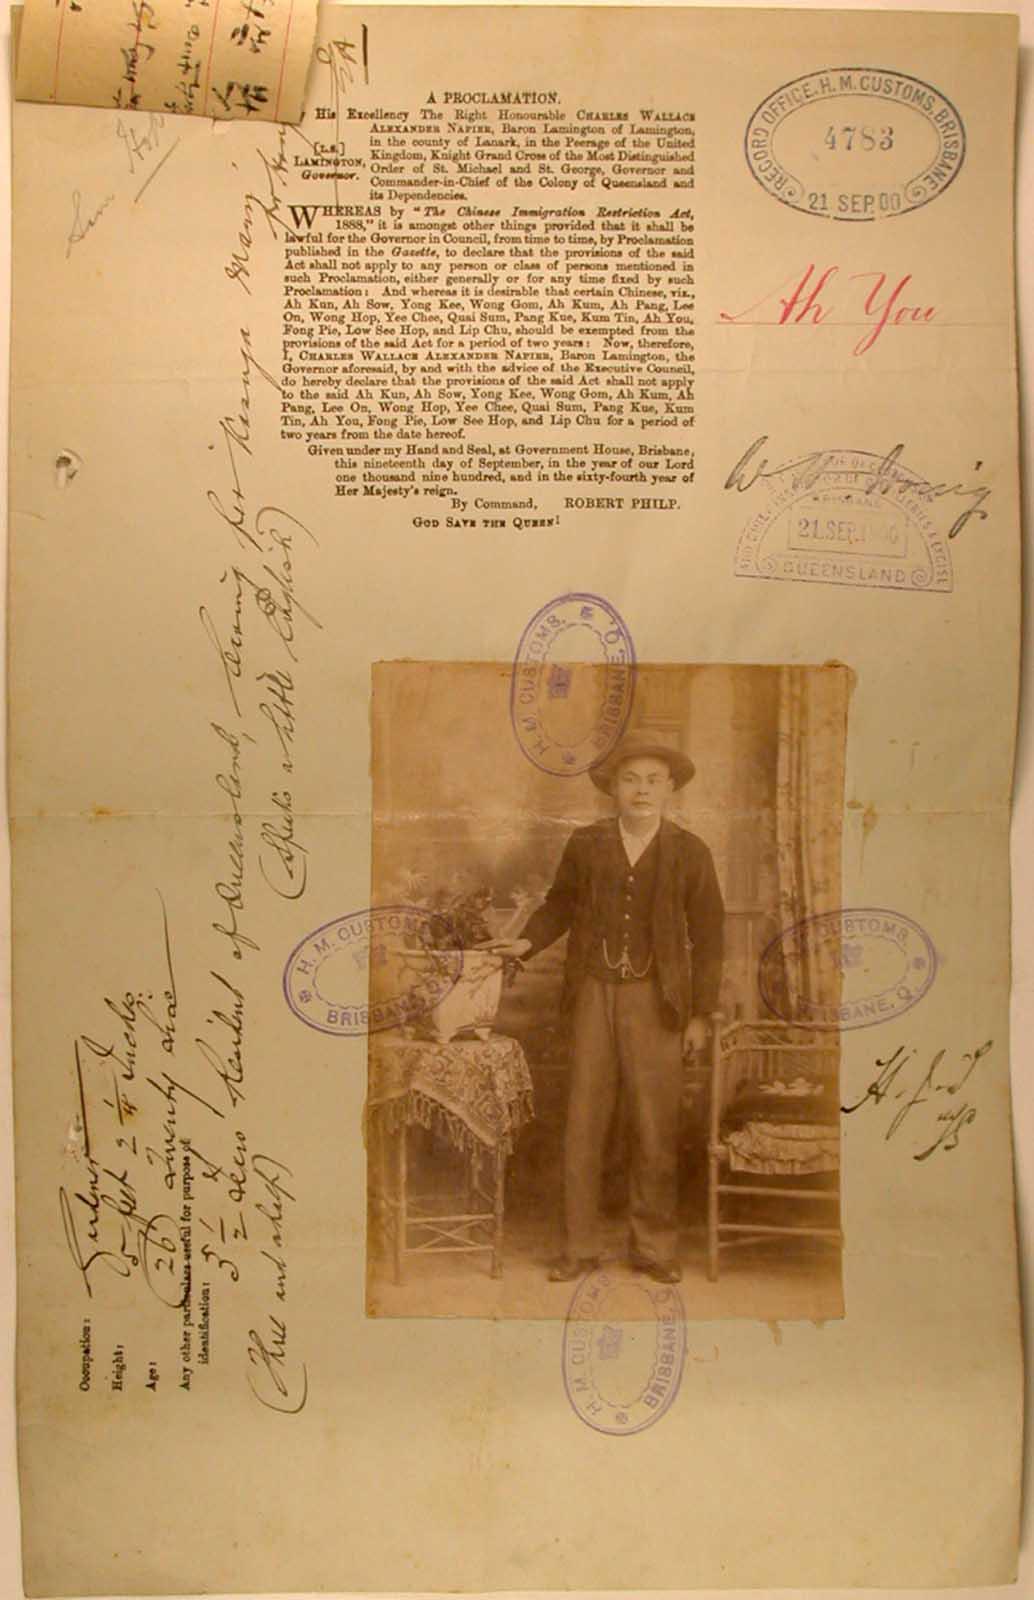 A PROCLAMATION.
His Excellency The Right Honourable CHARLES WALLACE
ALEXANDER NAPIER, Baron Lamington of Lamington,
in the county of Lanark, in the Peerage of the United
[L.S.]
Kingdom, Knight Grand Cross of the Most Distinguished
LAMINGTON,
Order of St. Michael and St. George, Governor and
Governor.
Commander-in-Chief of the Colony of Queensland and
its Dependencies.
WHEREAS by "The Chinese Immigration Restriction Act,
1888," it is amongst other things provided that it shall be
lawful for the Governor in Council, from time to time, by Proclamation
published in the Gazette, to declare that the provisions of the said
Act shall not apply to any person or class of persons mentioned in
such Proclamation, either generally or for any time fixed by such
Proclamation: And whereas it is desirable that certain Chinese, viz.,
Ah Kun, Ah Sow, Yong Kee, Wong Gom, Ah Kum, Ah Pang, Lee
On, Wong Hop, Yee Chee, Quai Sum, Pang Kue, Kum Tin, Ah You,
Fong Pie, Low See Hop, and Lip Chu, should be exempted from the
provisions of the said Act for a period of two years: Now, therefore,
I, CHARLES WALLACE ALEXANDER NAPIER, Baron Lamington, the
Governor aforesaid, by and with the advice of the Executive Council,
do hereby declare that the provisions of the said Act shall not apply
to the said Ah Kun, Ah Sow, Yong Kee, Wong Gom, Ah Kum, Ah
Pang, Lee On, Wong Hop, Yee Chee, Quai Sum, Pang Kue, Kum
Tin, Ah You, Fong Pie, Low See Hop, and Lip Chu for a period of
two years from the date hereof.
Given under my Hand and Seal, at Government House, Brisbane,
this nineteenth day of September, in the year of our Lord
one thousand nine hundred, and in the sixty-fourth year of
Her Majesty's reign.
By Command, ROBERT PHILP.
GOD SAVE THE QUEEN!
RECORD OFFICE, H. M. CUSTOMS, BRISBANE
4783
21 SEP. 00
Ah You
BRISBANE
21. SEP. 1900
QUEENSLAND
H. M. CUSTOMS. BRISBANE, Q.
H. M. CUSTOMS. BRISBANE, Q.
H. M. CUSTOMS. BRISBANE, Q.
H. M. CUSTOMS. BRISBANE, Q.
Occupation: Gardener
Height: 5 feet 2 1/4 Inches
Age: 26 twenty six
Any other particulars useful for purpose of
identification: 3 1/2 years Resident of Queensland, leaving per
(Three and a half) (Speaks a little English)